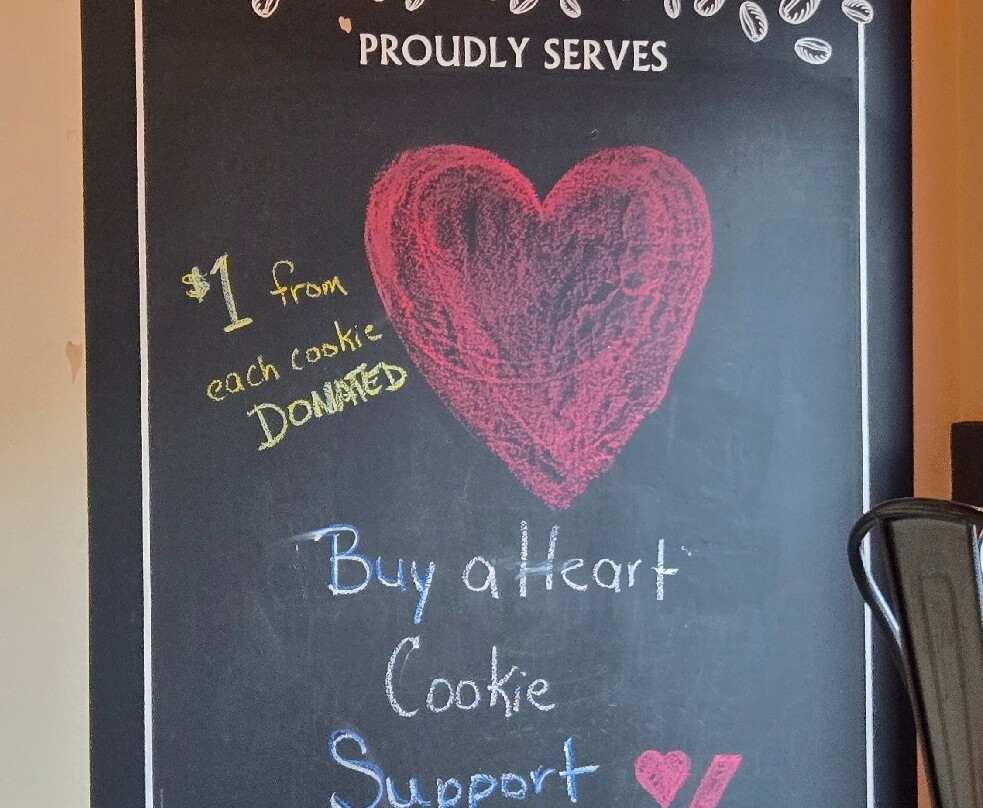 PROUDLY SERVES
$1 from
each cookie
DONATED
Buy a Heart
Cookie
Support